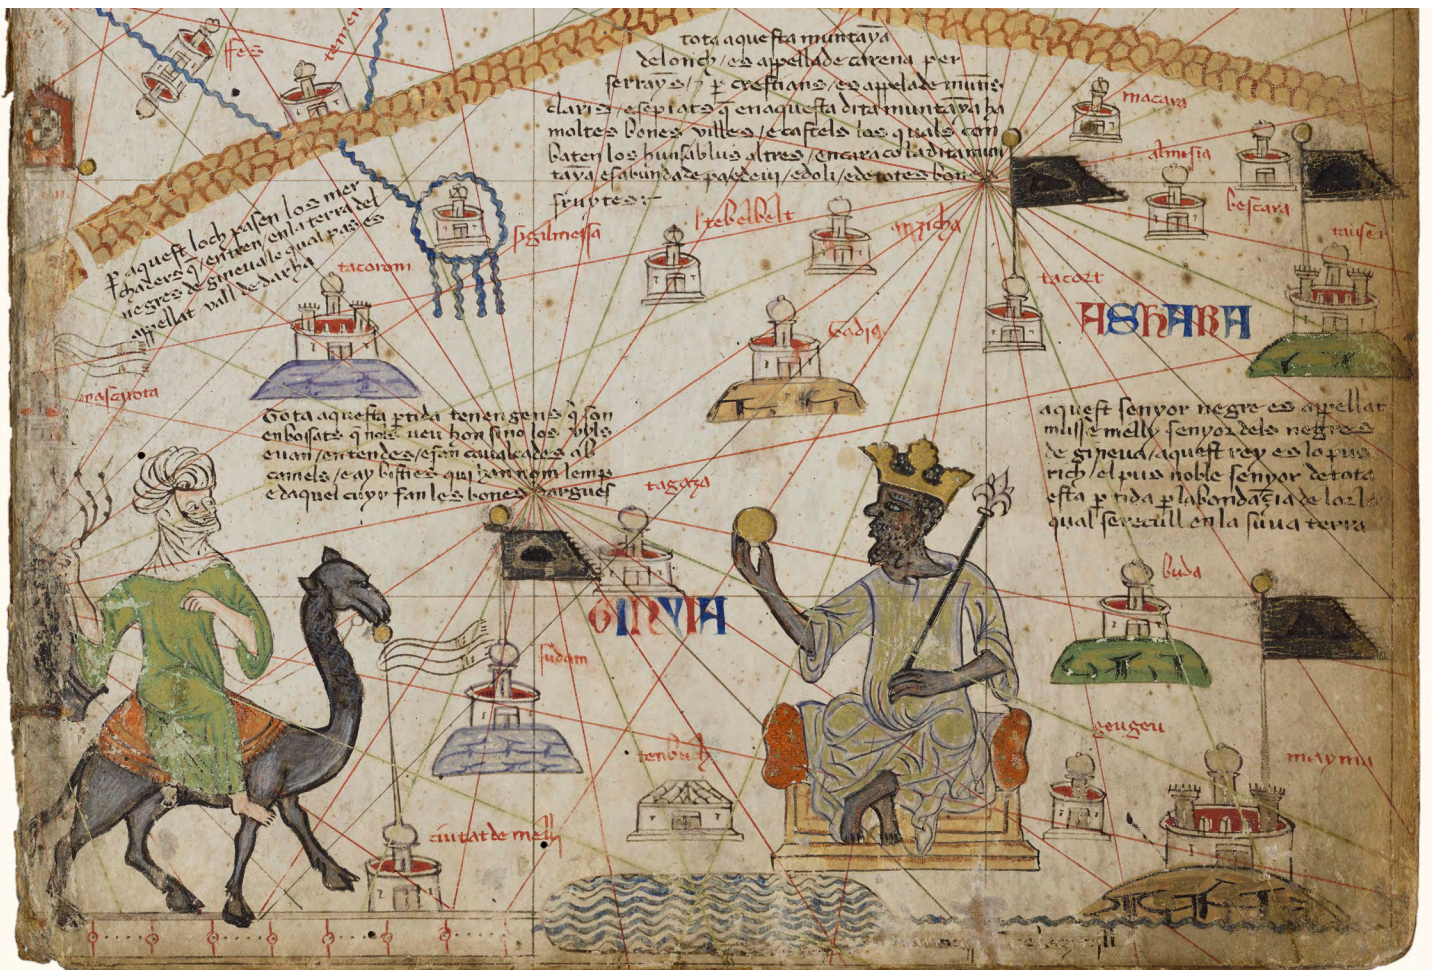 fes
tota aquesta muntaya
de lonch / es appellade carena per
serrayns / e per crestians / es appelade muns
claris / e sepiats q̃ en aquesta dita muntaya ha
moltes bones villes / e castels los quals con
baten los huns ab lus altres / encara co la dita mun
taya es abundade de pa e de vi / e d oli / e de totes bones
fruytes
macara
almisia
bescara
tauser
p aquest loch pasen los mer
chaders q̃ entren / en la terra del
negres de gineva / lo qual pas es
appellat vall de darha
sigilmessa
stebelbelt
anzicha
tacort
tacorom
ASHARA
Tota aquesta ptida tenen gens q̃ son
enbosats q̃ nols veu hom sino los uyls
e van / en tendes / e fan cavalcades ab
camels / e ay bisties qui han nom lemp
e daquel cuyr fan les bones dargues
aquest senyor negre es appellat
musse melly senyor dels negres
de gineva / aquest rey es lo pus
rich / el pus noble senyor de tota
esta ptida p labondazia de lor lo
qual se recull en la suua terra
tagaza
GINYIA
buda
sudam
tenbuch
geugeu
mayma
ciutat de melli